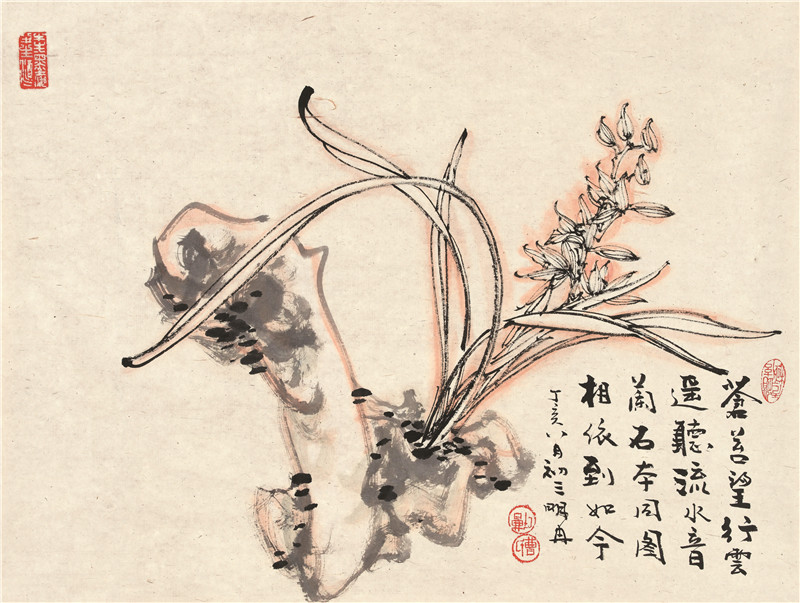 蒼苔望行雲
遥聽流水音
蘭石本同圖
相依到如今
丁亥八月初三